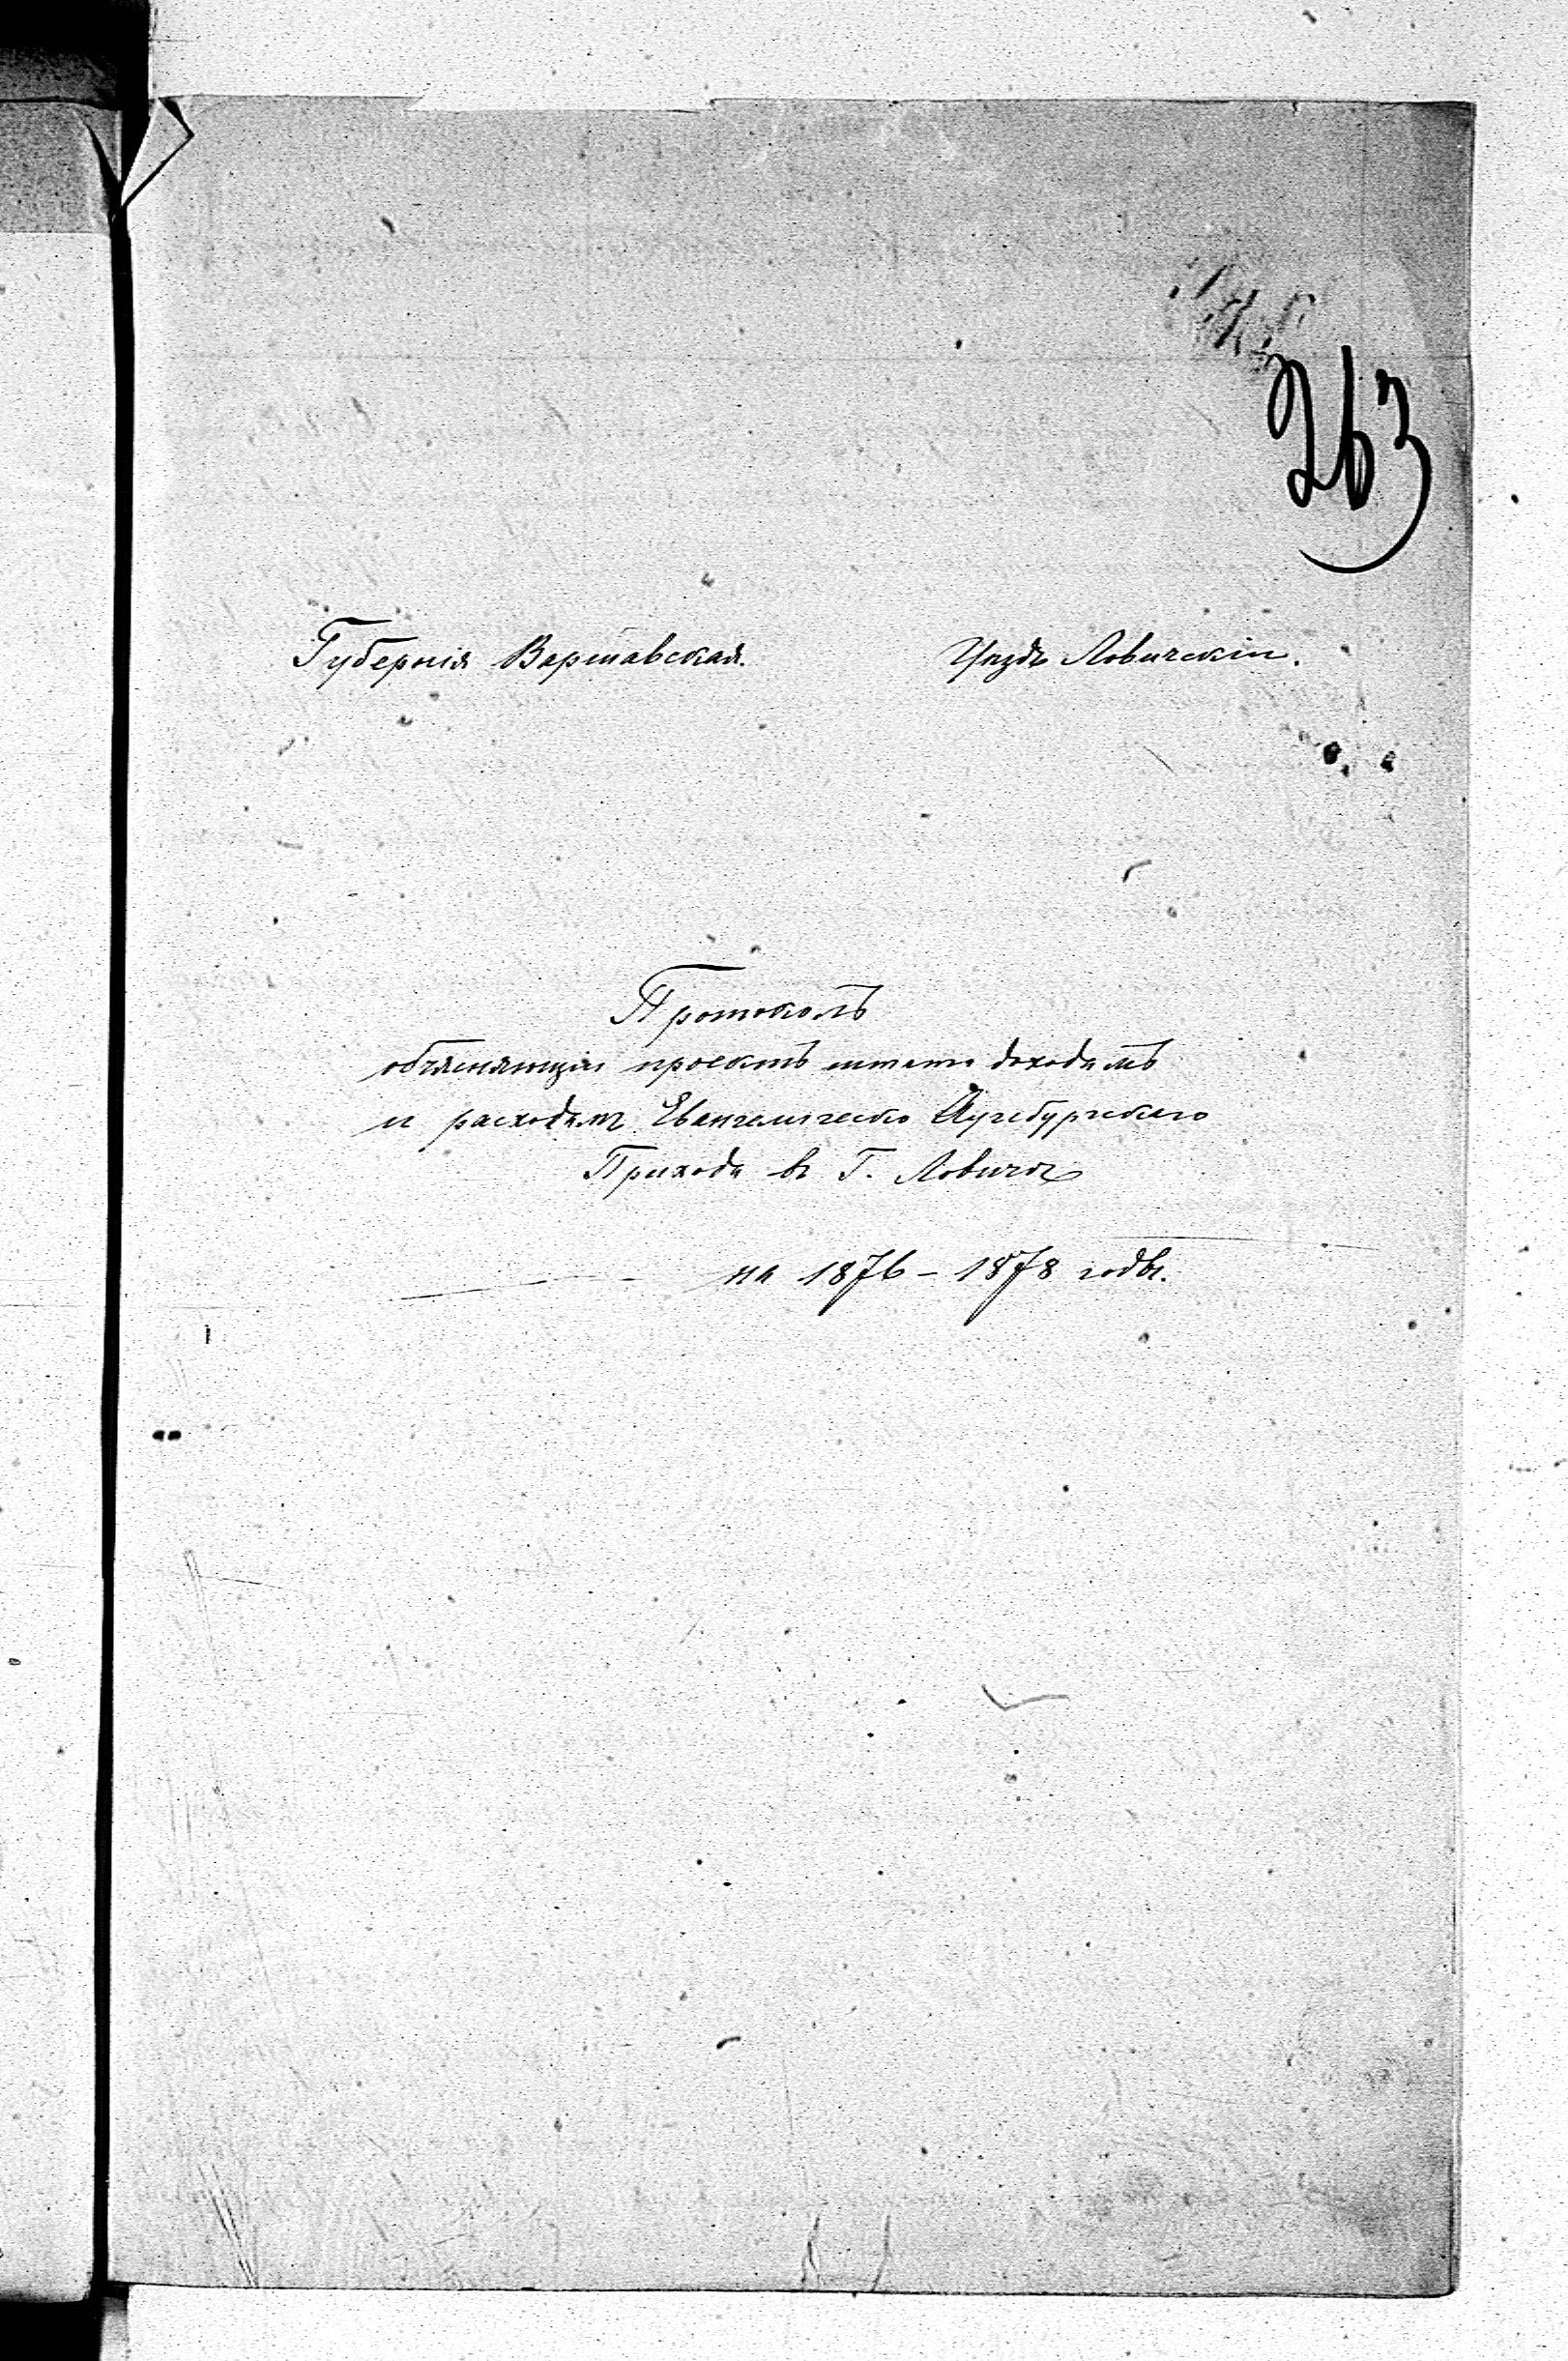 263
Губернія Варшавская. Уѣздъ Ловичскій.
Протоколъ
объясняющій проектъ штата доходамъ
и расходамъ Евангелическо Аугсбургскаго
Прихода въ Г. Ловичѣ
на 1876 – 1878 годы.